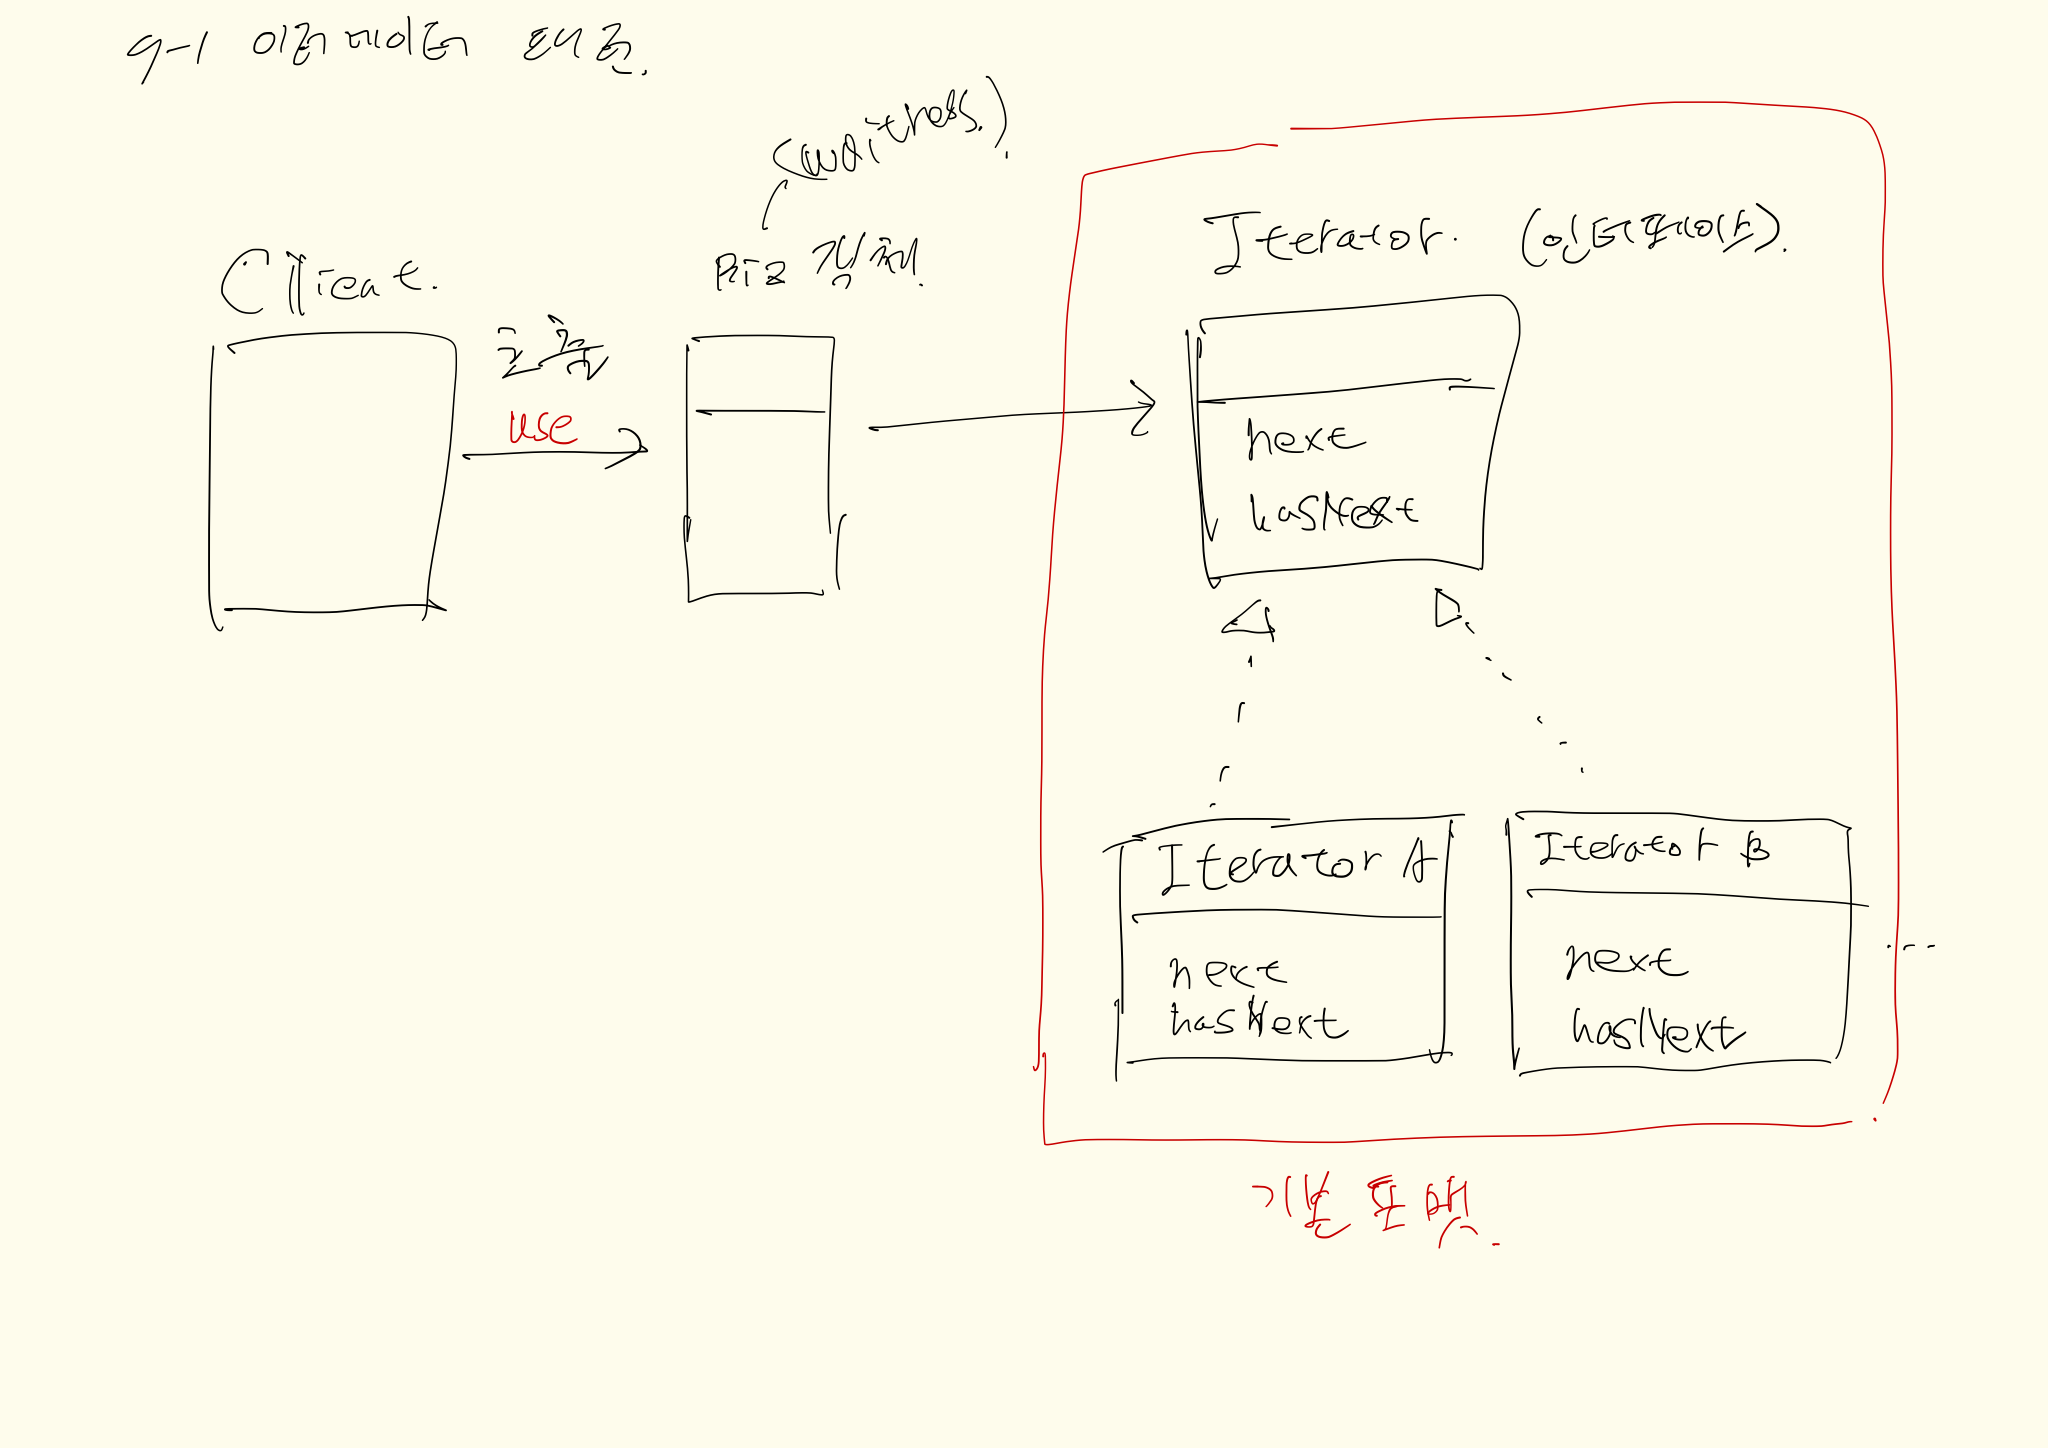 9-1 이터레이터 패턴.
(waitress.)
Client.
Biz 객체.
호출
use
Iterator. (인터페이스).
next
hasNext
Iterator A
next
hasNext
Iterator B
next
hasNext
...
기본 포맷.